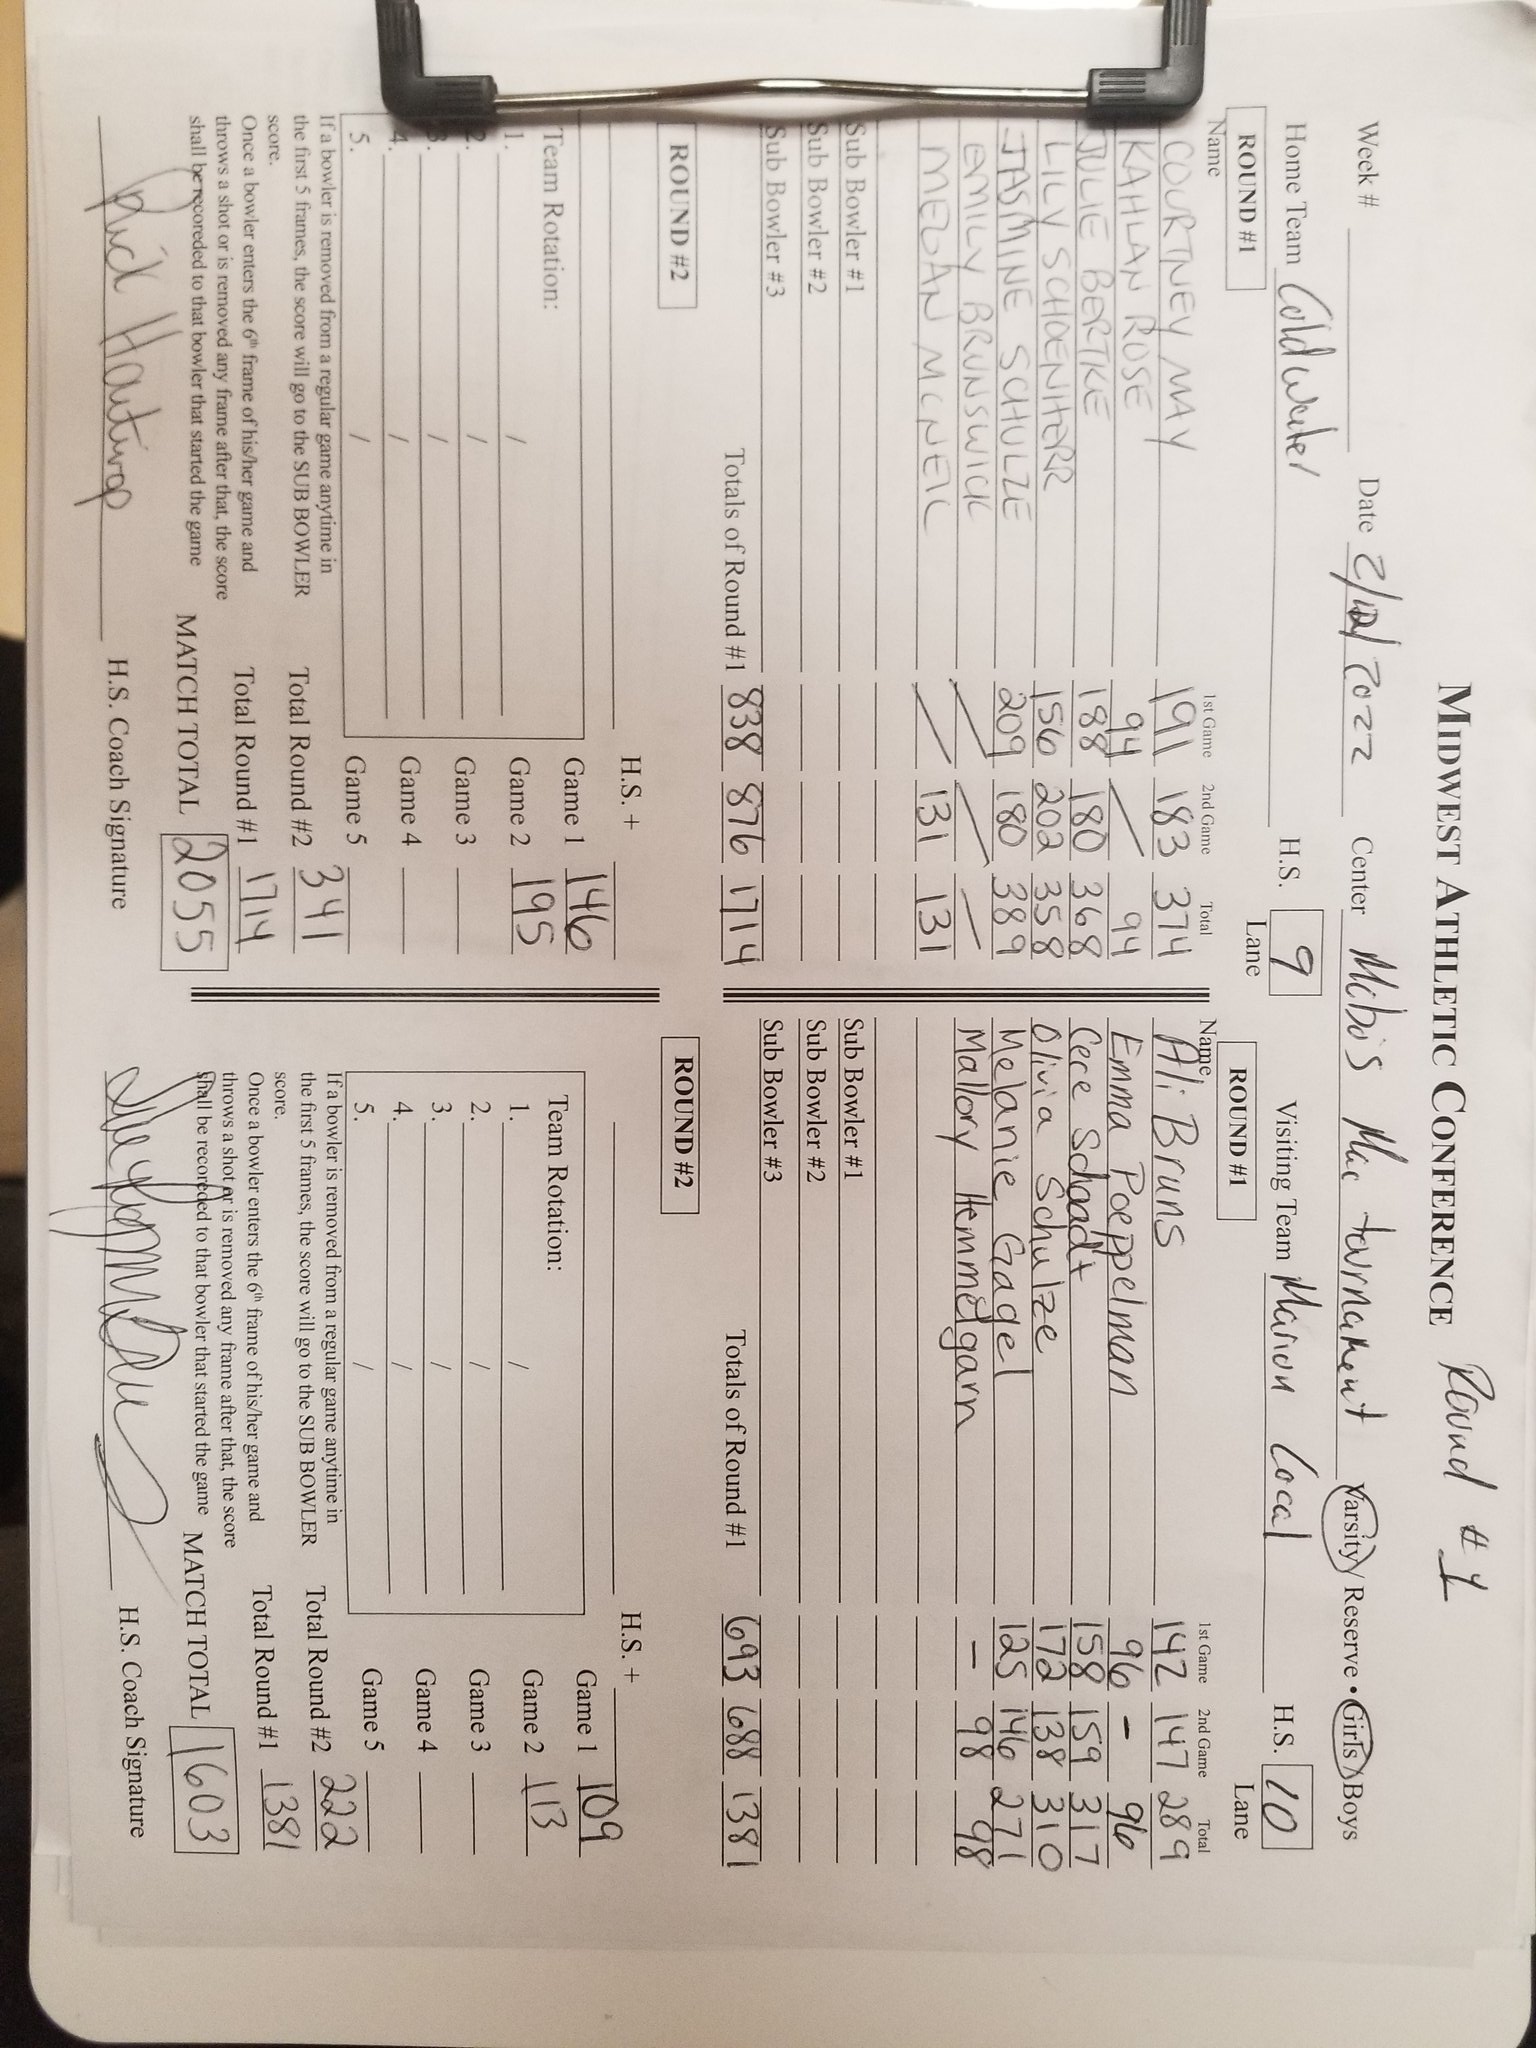 MIDWEST ATHLETIC CONFERENCE Round #1
Week # Date 2/12/2022 Center McBo's Mac tournament Varsity/Reserve • Girls/Boys
Home Team Coldwater H.S. 9 Lane
ROUND #1
Name 1st Game 2nd Game Total
COURTNEY MAY 191 183 374
KAHLAN ROSE 94 / 94
JULIE BERTKE 188 180 368
LILY SCHOENHERR 156 202 358
JASMINE SCHULZE 209 180 389
EMILY BRUNSWICK / / /
MEGAN MCNEIL / 131 131
Sub Bowler #1
Sub Bowler #2
Sub Bowler #3
Totals of Round #1 838 876 1714
ROUND #2
H.S. +
Team Rotation:
1. /
2. /
3. /
4. /
5. /
Game 1 146
Game 2 195
Game 3
Game 4
Game 5
If a bowler is removed from a regular game anytime in
the first 5 frames, the score will go to the SUB BOWLER
score.
Once a bowler enters the 6th frame of his/her game and
throws a shot or is removed any frame after that, the score
shall be recoreded to that bowler that started the game
Total Round #2 341
Total Round #1 1714
MATCH TOTAL 2055
H.S. Coach Signature
Visiting Team Marion Local H.S. 10 Lane
ROUND #1
Name 1st Game 2nd Game Total
Ali Bruns 142 147 289
Emma Poeppelman 96 - 96
Cece Schaadt 158 159 317
Olivia Schulze 172 138 310
Melanie Gagel 125 146 271
Mallory Hemmelgarn - 98 98
Sub Bowler #1
Sub Bowler #2
Sub Bowler #3
Totals of Round #1 693 688 1381
ROUND #2
H.S. +
Team Rotation:
1. /
2. /
3. /
4. /
5. /
Game 1 109
Game 2 113
Game 3
Game 4
Game 5
If a bowler is removed from a regular game anytime in
the first 5 frames, the score will go to the SUB BOWLER
score.
Once a bowler enters the 6th frame of his/her game and
throws a shot or is removed any frame after that, the score
shall be recoreded to that bowler that started the game
Total Round #2 222
Total Round #1 1381
MATCH TOTAL 1603
H.S. Coach Signature